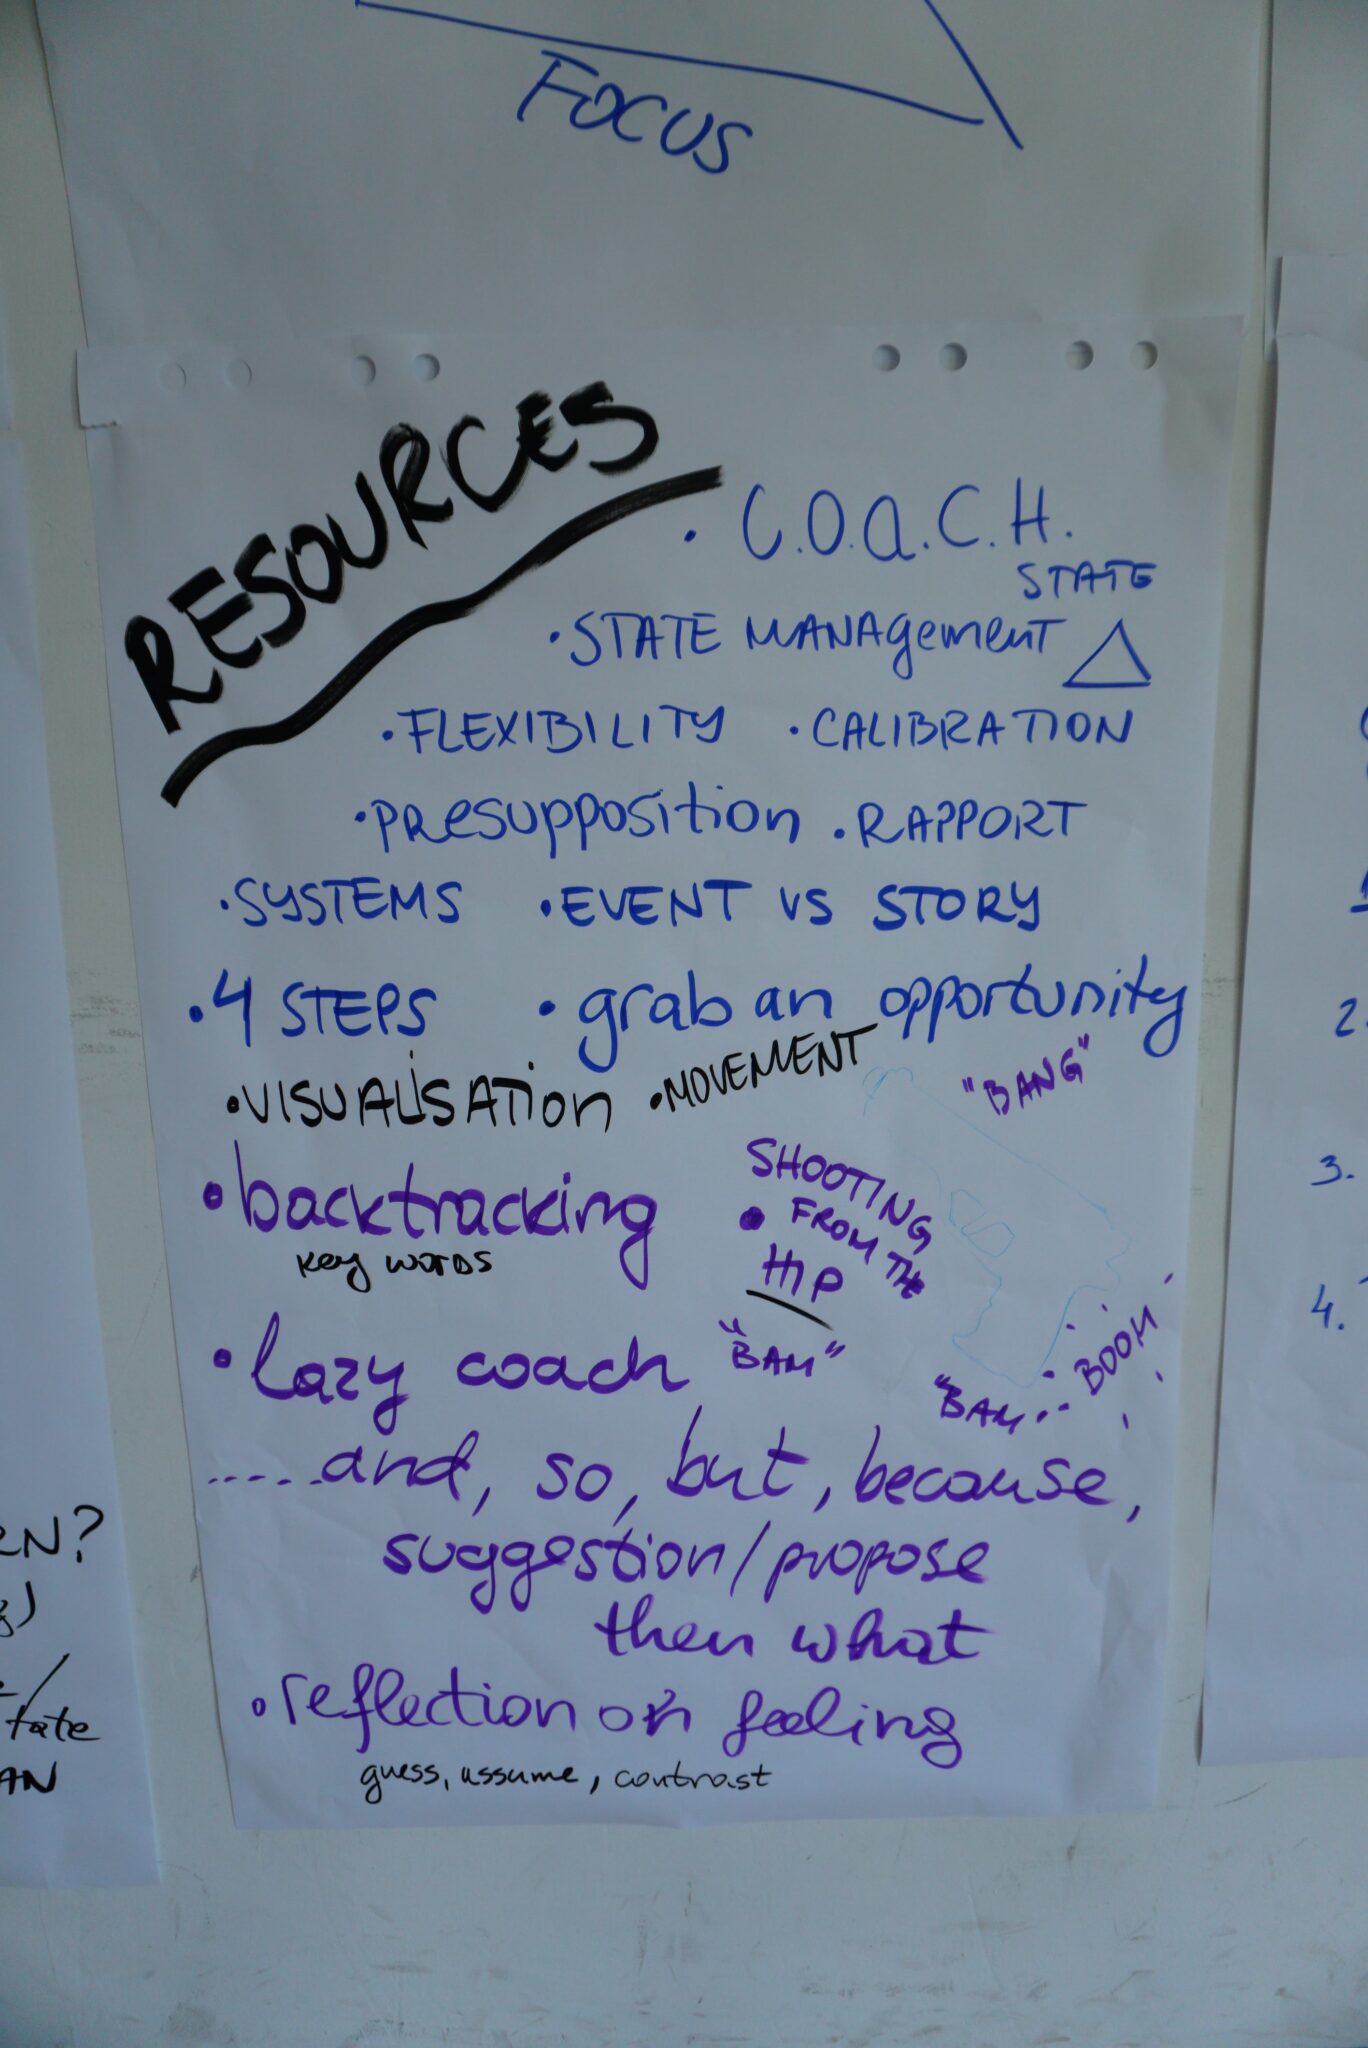 FOCUS
RESOURCES
• C.O.A.C.H.
STATE
• STATE MANAgement
• FLEXIBILITY • CALIBRATION
• PResupposition • RAPPORT
• SYSTEMS • EVENT VS STORY
• 4 STEPS • grab an opportunity
• VISUALiSATion • MOVEMENT
"BANG"
• backtracking
key words
• SHOOTING
FROM THE
HIP
• lazy coach "BAM"
"BAM... BOOM
.....and, so, but, because,
suggestion/propose
then what
• reflection on feeling
guess, assume, contrast
2.
3.
4.
N?
tate
AN